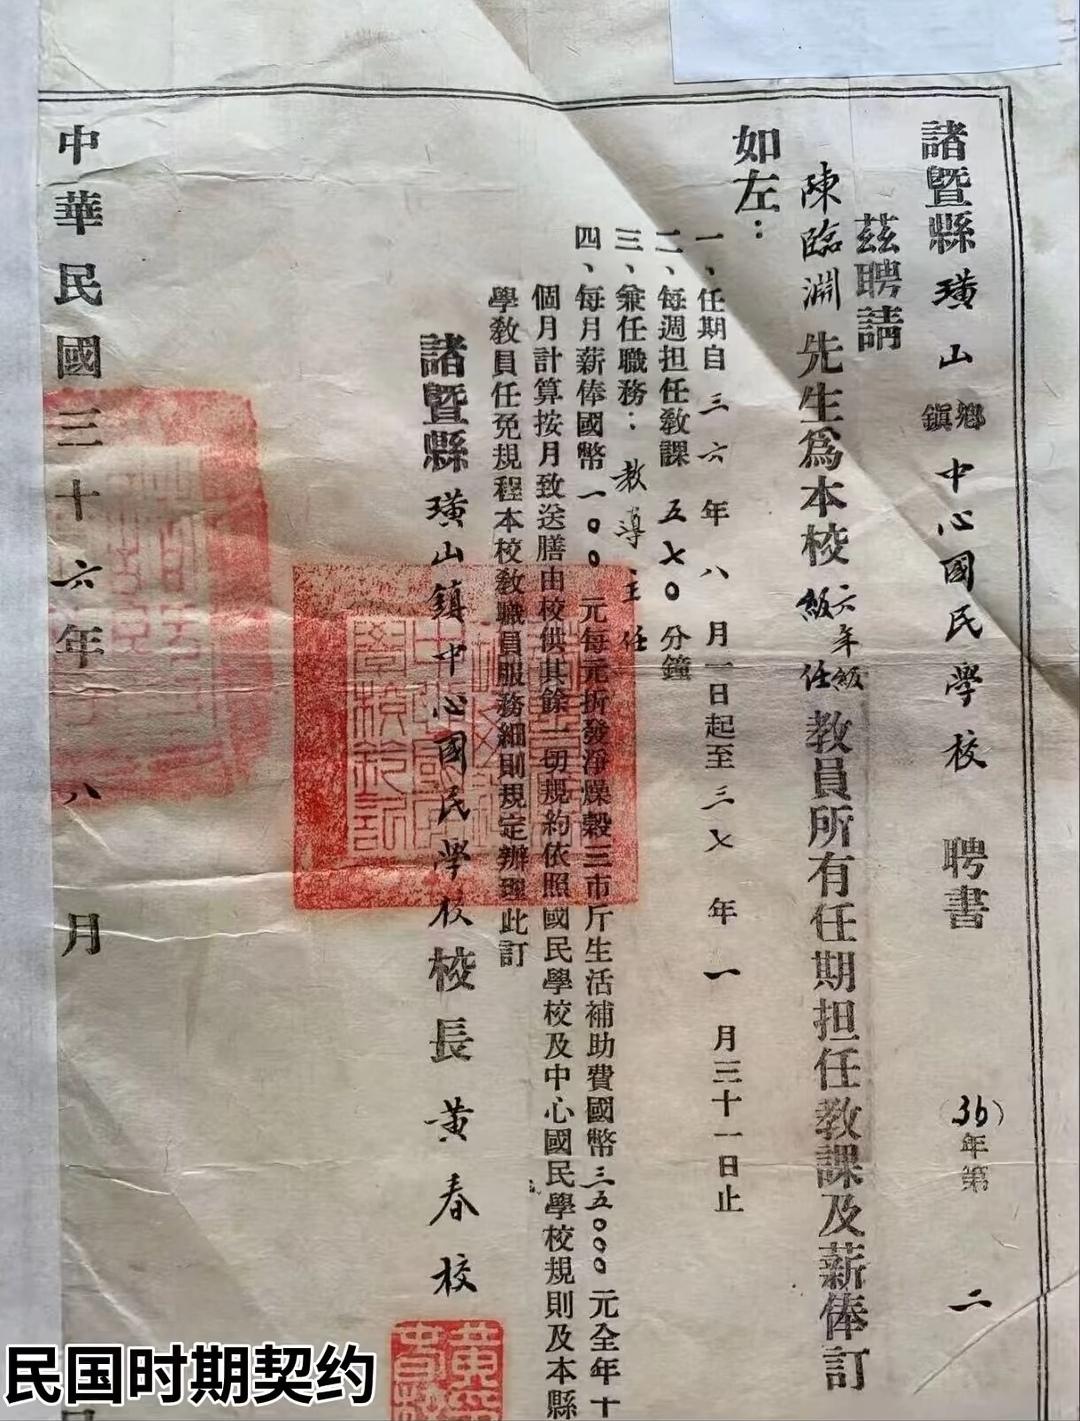 諸暨縣璜山鄉鎮中心國民學校 聘書 (36)年第 二
茲聘請
陳臨淵先生為本校六年級級任教員所有任期担任教課及薪俸訂
如左：
一、任期自三六年八月一日起至三七年一月三十一日止
二、每週担任教課五七〇分鐘
三、兼任職務：教導主任
四、每月薪俸國幣一〇〇元每元折發淨燥穀三市斤生活補助費國幣三五〇〇〇元全年十
個月計算按月致送膳由校供其餘一切規約依照國民學校及中心國民學校規則及本縣
學教員任免規程本校教職員服務細則規定辦理此訂
諸暨縣璜山鎮中心國民學校校長黃春校
中華民國三十六年八月
民国时期契约